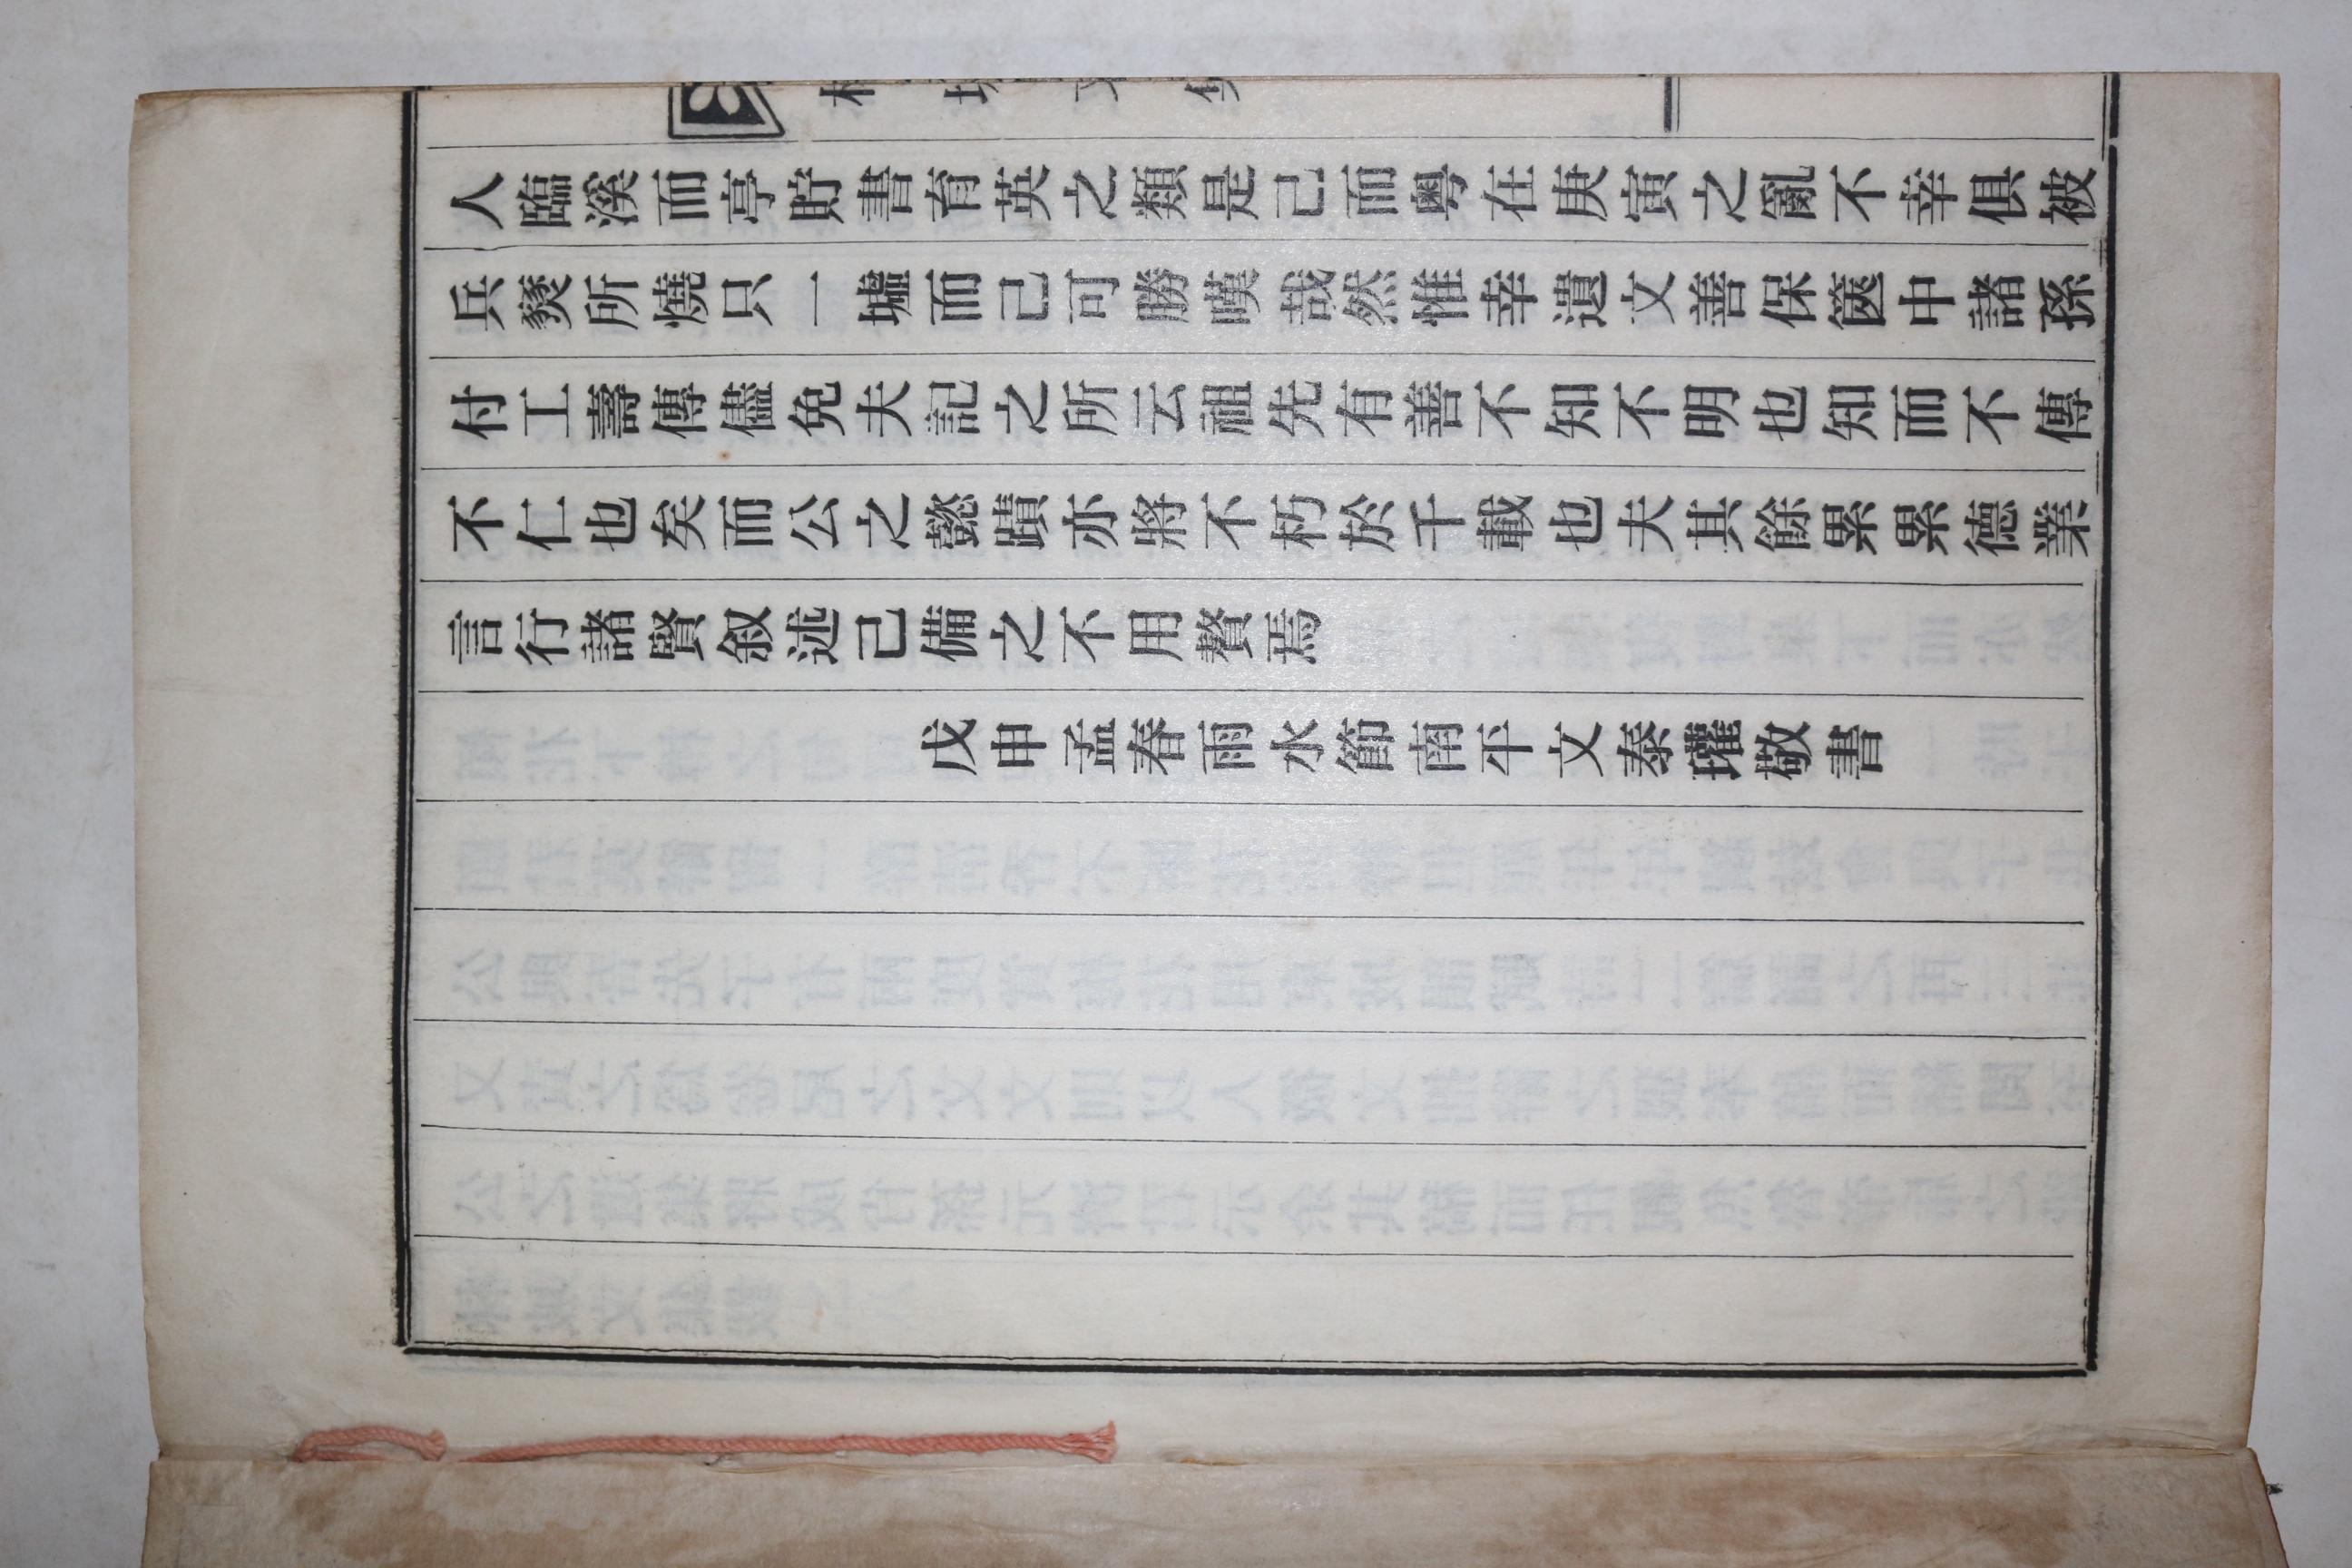 人臨溪而亭貯書育英之類是己而粤在庚寅之亂不幸俱被
兵燹所燒只一墟而己可勝嘆哉然惟幸遺文善保篋中諸孫
付工壽傳儘免夫記之所云祖先有善不知不明也知而不傳
不仁也矣而公之懿蹟亦將不朽於千載也夫其餘累累德業
言行諸賢叙述己備之不用贅焉
戊申孟春雨水節南平文泰瓘敬書
文集
一